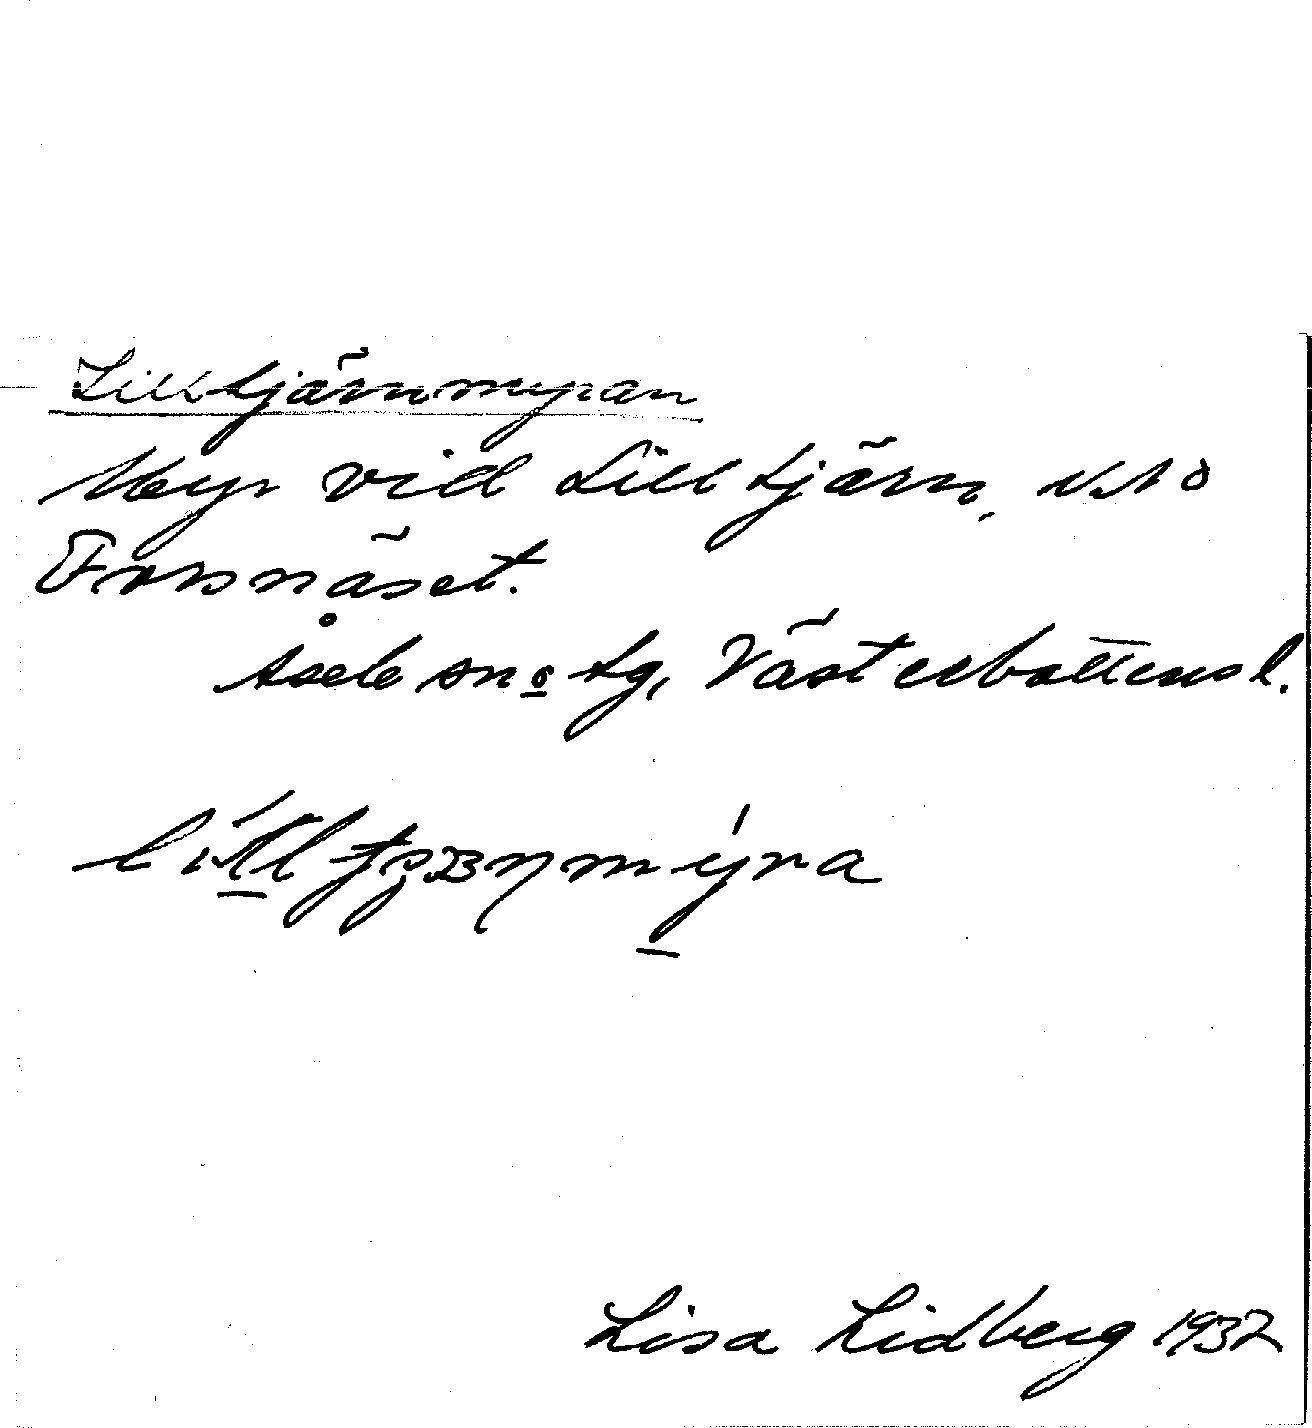 Lilltjärnmyran
Myr vid Lilltjärn, NNO
Forsnäset.
Åsele sn o lg, Västerbottens l.
Lisa Lidberg 1937